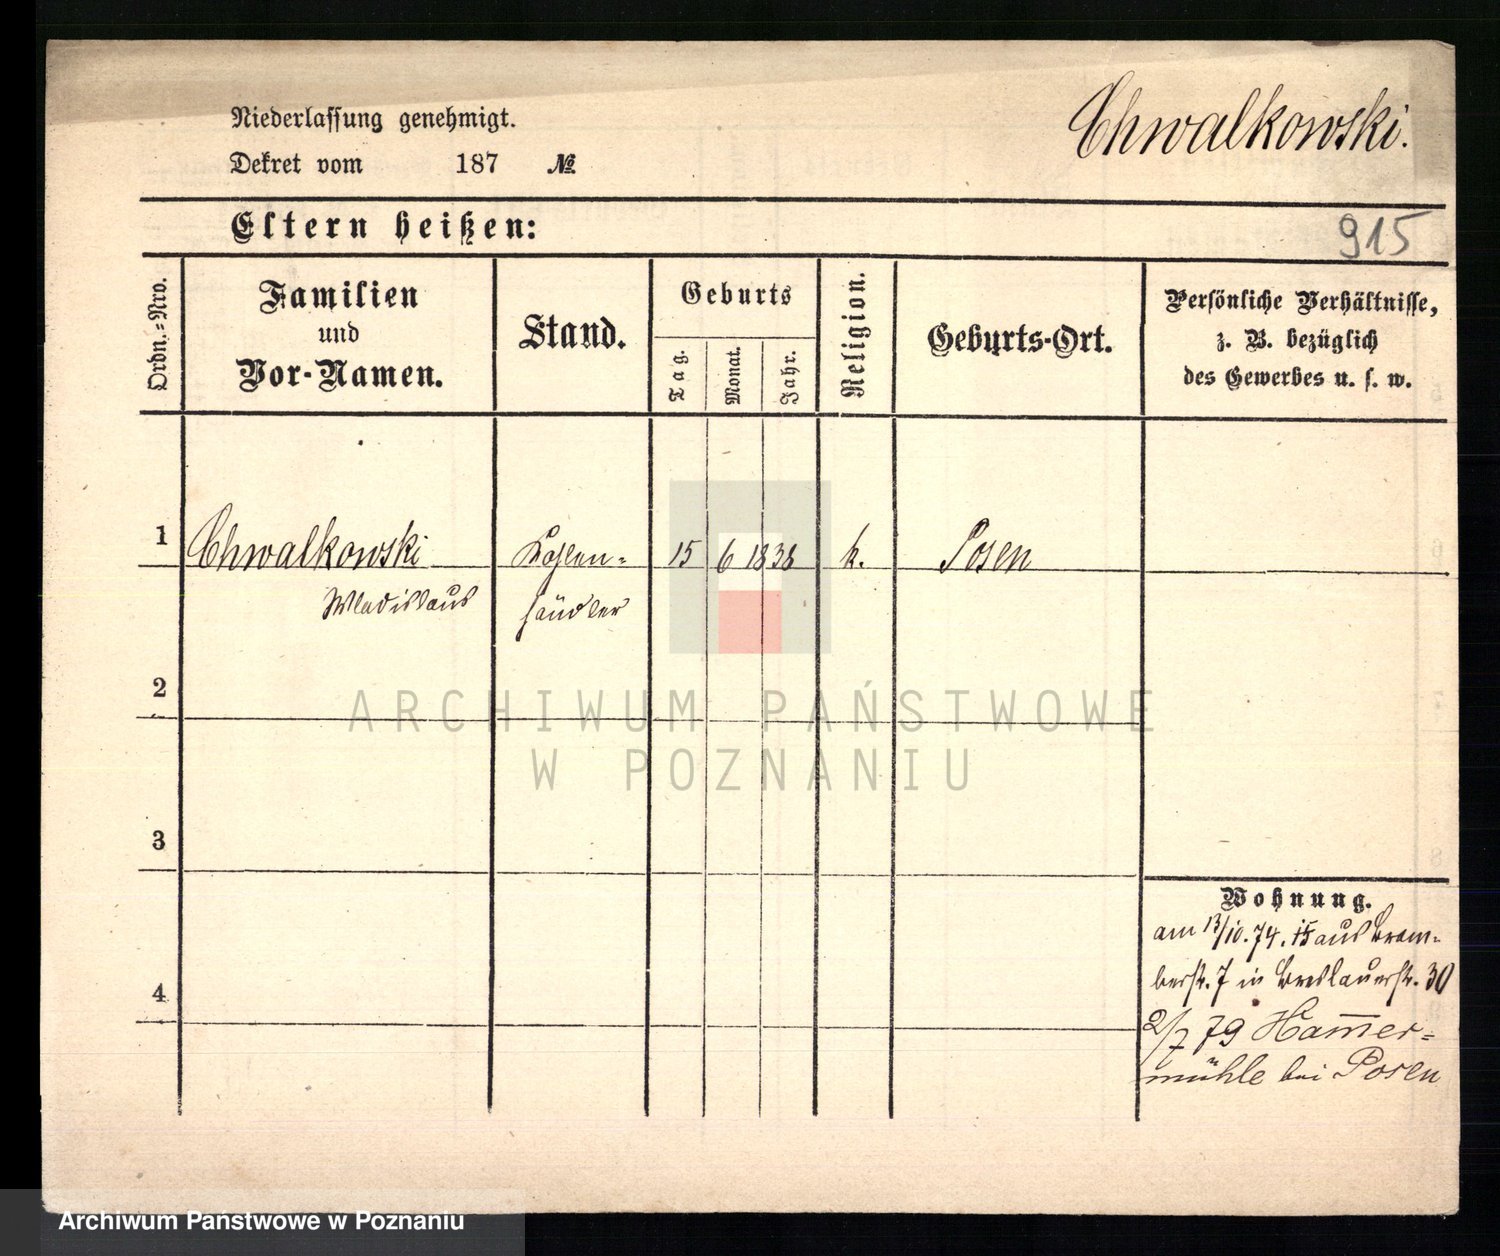 Niederlassung genehmigt.
Chwalkowski.
Dekret vom 187 №
Eltern heißen:
915
Ordn.=Nro.
Familien
und
Vor-Namen.
Stand.
Geburts
Tag.
Monat.
Jahr.
Religion.
Geburts-Ort.
Persönliche Verhältnisse,
z. B. bezüglich
des Gewerbes u. s. w.
1 Chwalkowski Kohlen= 15 6 1838 k. Posen
Wladislaus händler
2
3
4
Wohnung.
am 13/10. 74. 15 aus Brom=
berstr. 7 in Breslauerstr. 30
2/7 79 Ham̅er=
mühle bei Posen
ARCHIWUM PAŃSTWOWE
W POZNANIU
Archiwum Państwowe w Poznaniu